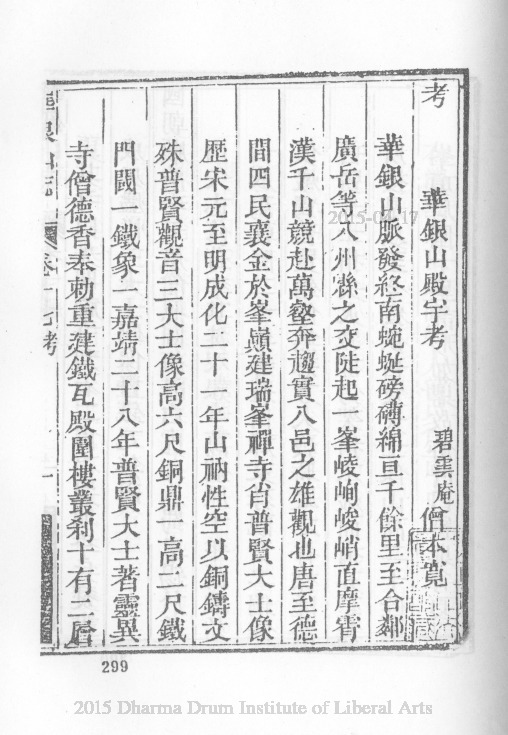 考
華銀山殿宇考
碧雲庵僧本寬
華銀山脈發終南蜿蜒磅礴綿亘千餘里至合鄰
廣岳等八州縣之交陡起一峯崚峋峻峭直摩霄
漢千山競赴萬壑奔趨實八邑之雄觀也唐至德
間四民襄金於峯巔建瑞峯禪寺肖普賢大士像
歷宋元至明成化二十一年山衲性空以銅鑄文
殊普賢觀音三大士像高六尺銅鼎一高二尺鐵
門閫一鐵象一嘉靖二十八年普賢大士著靈異
寺僧德香奉勅重建鐵瓦殿圍樓叢刹十有二層
山志
卷十七考
一
2015-04-17
299
2015 Dharma Drum Institute of Liberal Arts